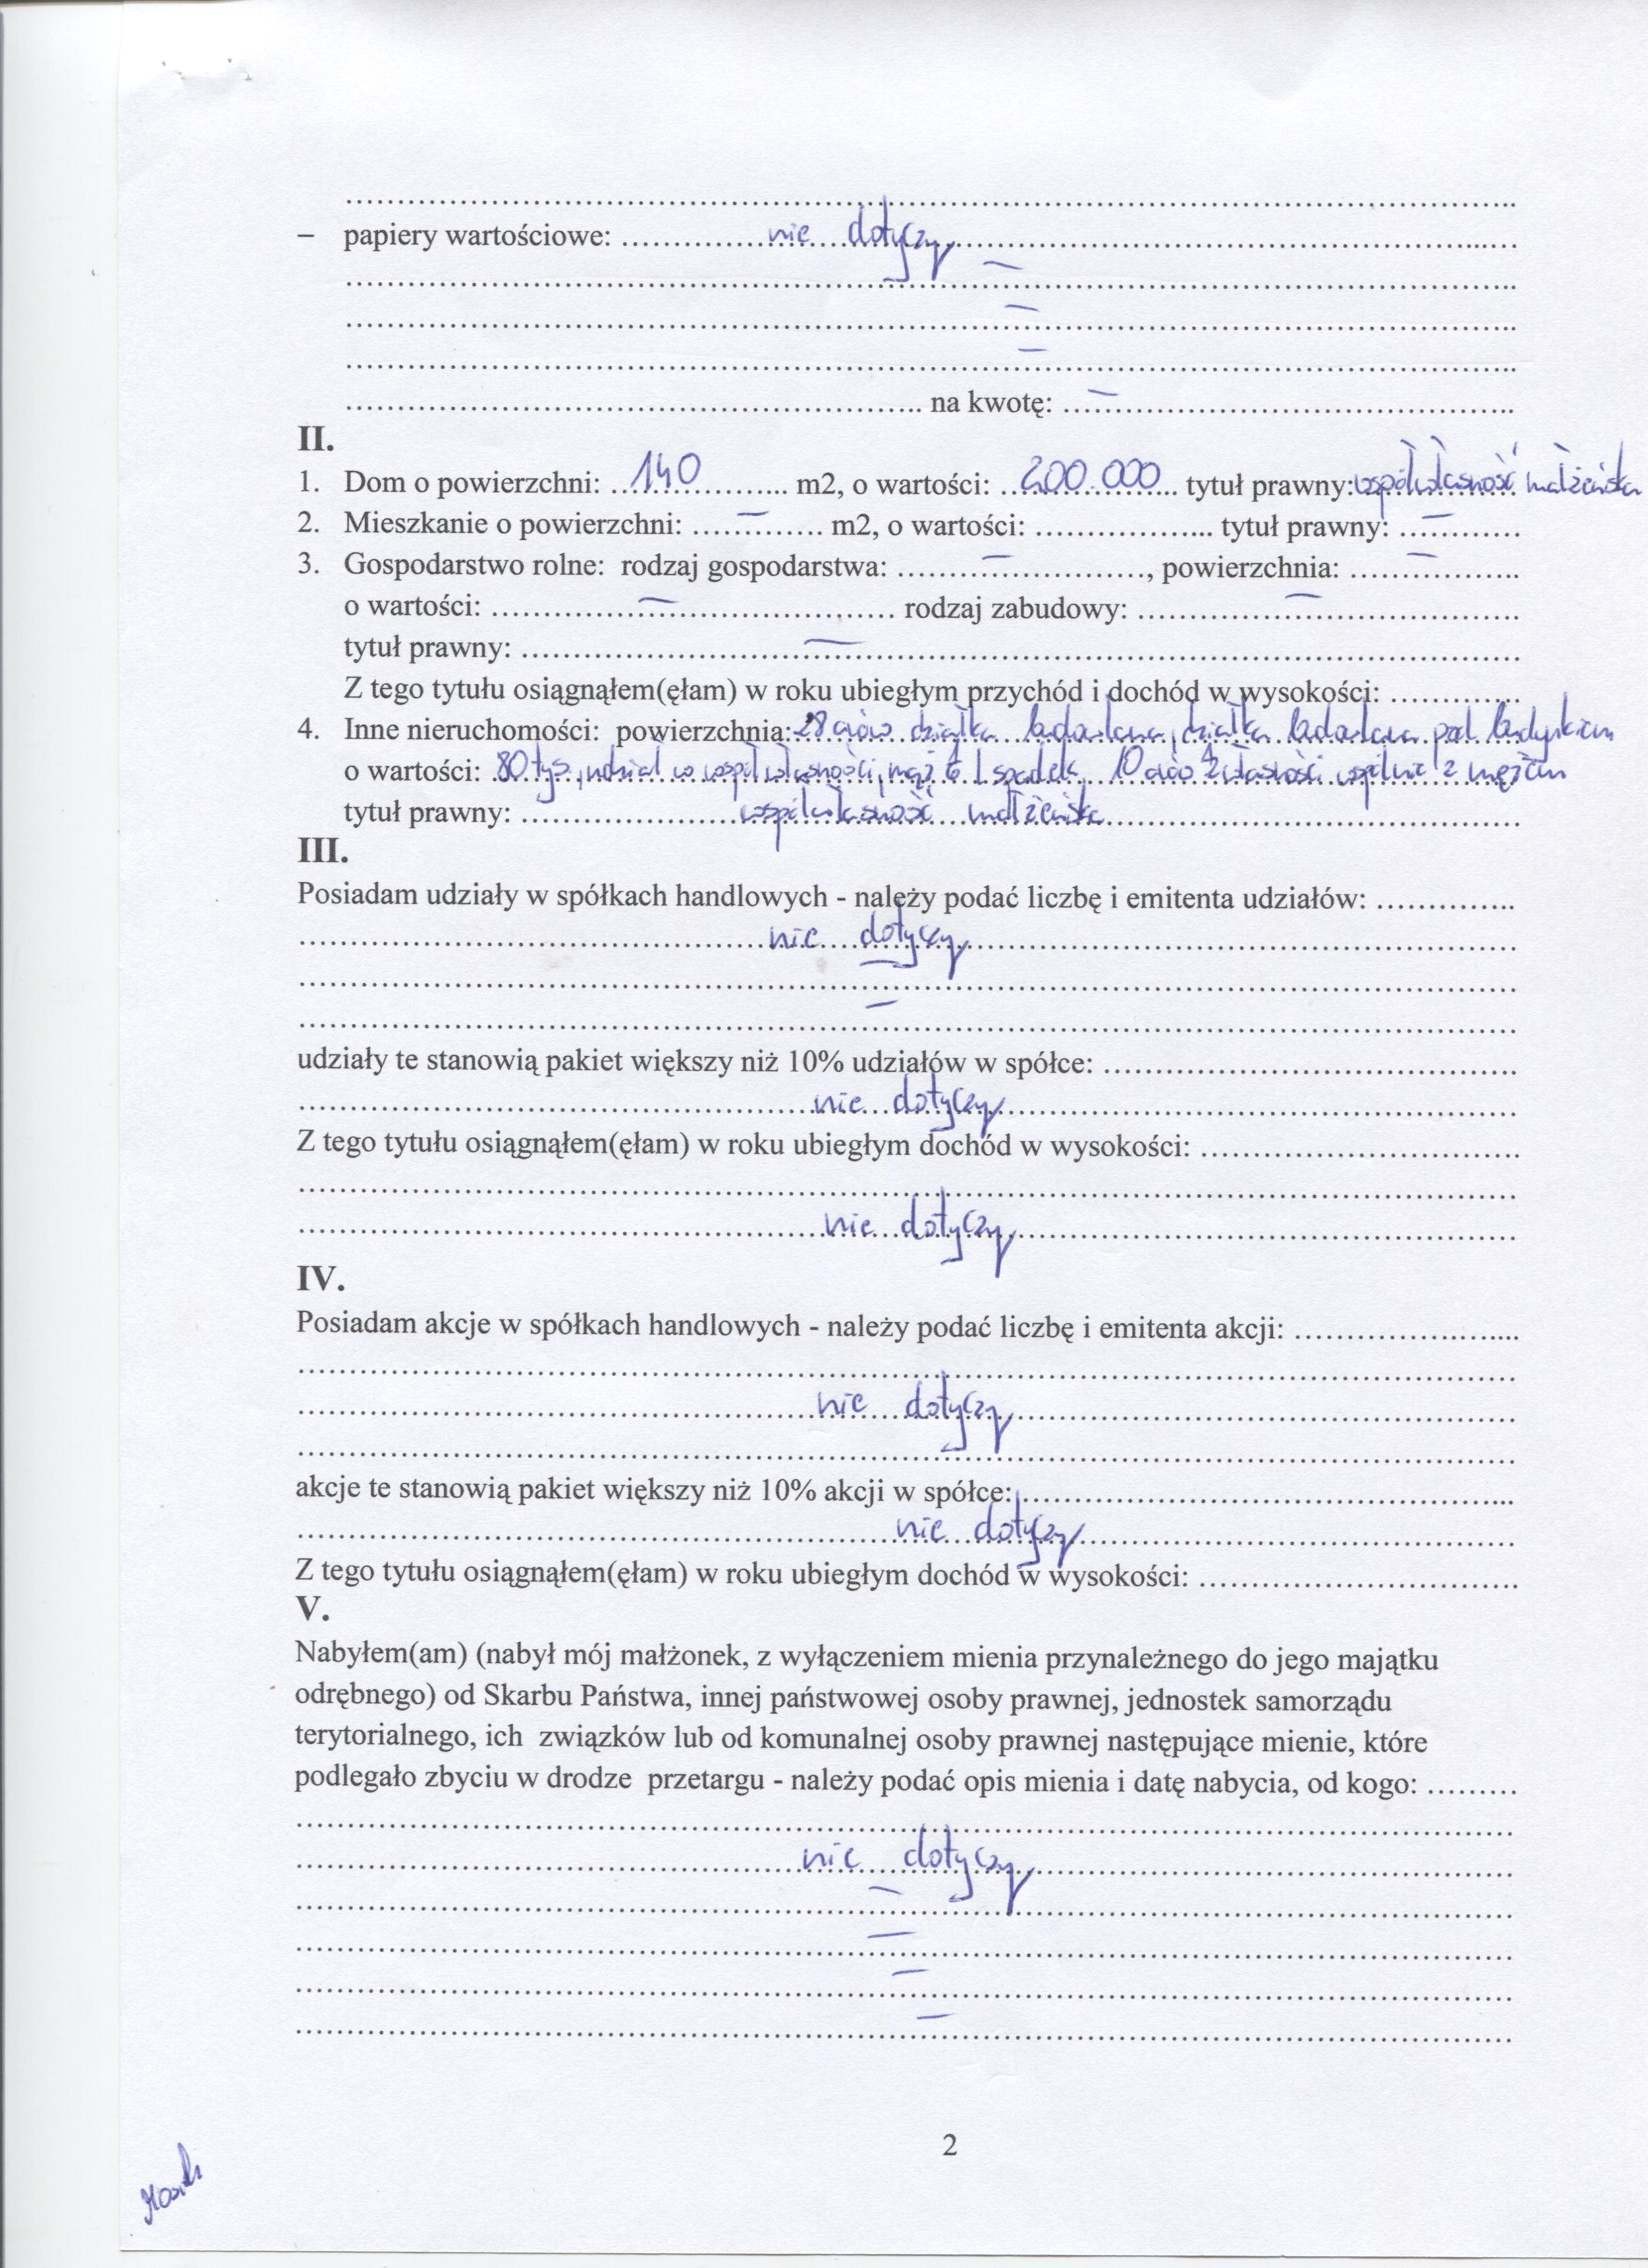 – papiery wartościowe: nie dotyczy
–
–
–
na kwotę: –
II.
1. Dom o powierzchni: 140 m2, o wartości: 200.000 tytuł prawny: współwłasność małżeńska
2. Mieszkanie o powierzchni: – m2, o wartości: tytuł prawny: –
3. Gospodarstwo rolne: rodzaj gospodarstwa: –, powierzchnia: –
o wartości: – rodzaj zabudowy: –
tytuł prawny: –
Z tego tytułu osiągnąłem(ęłam) w roku ubiegłym przychód i dochód w wysokości:
4. Inne nieruchomości: powierzchnia: 28 arów działka budowlana, działka budowlana pod budynkiem
o wartości: 80 tys., udział w współwłasności, mąż spadek, 10 arów własności wspólnie z mężem
tytuł prawny: współwłasność małżeńska
III.
Posiadam udziały w spółkach handlowych - należy podać liczbę i emitenta udziałów:
nie dotyczy
–
–
udziały te stanowią pakiet większy niż 10% udziałów w spółce:
nie dotyczy
Z tego tytułu osiągnąłem(ęłam) w roku ubiegłym dochód w wysokości:
nie dotyczy
IV.
Posiadam akcje w spółkach handlowych - należy podać liczbę i emitenta akcji:
nie dotyczy
akcje te stanowią pakiet większy niż 10% akcji w spółce:
nie dotyczy
Z tego tytułu osiągnąłem(ęłam) w roku ubiegłym dochód w wysokości:
V.
Nabyłem(am) (nabył mój małżonek, z wyłączeniem mienia przynależnego do jego majątku
odrębnego) od Skarbu Państwa, innej państwowej osoby prawnej, jednostek samorządu
terytorialnego, ich związków lub od komunalnej osoby prawnej następujące mienie, które
podlegało zbyciu w drodze przetargu - należy podać opis mienia i datę nabycia, od kogo:
nie dotyczy
–
–
–
–
2